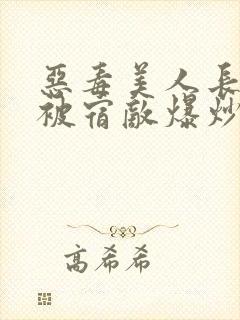 惡毒美人長
被宿敵爆炒
高希希